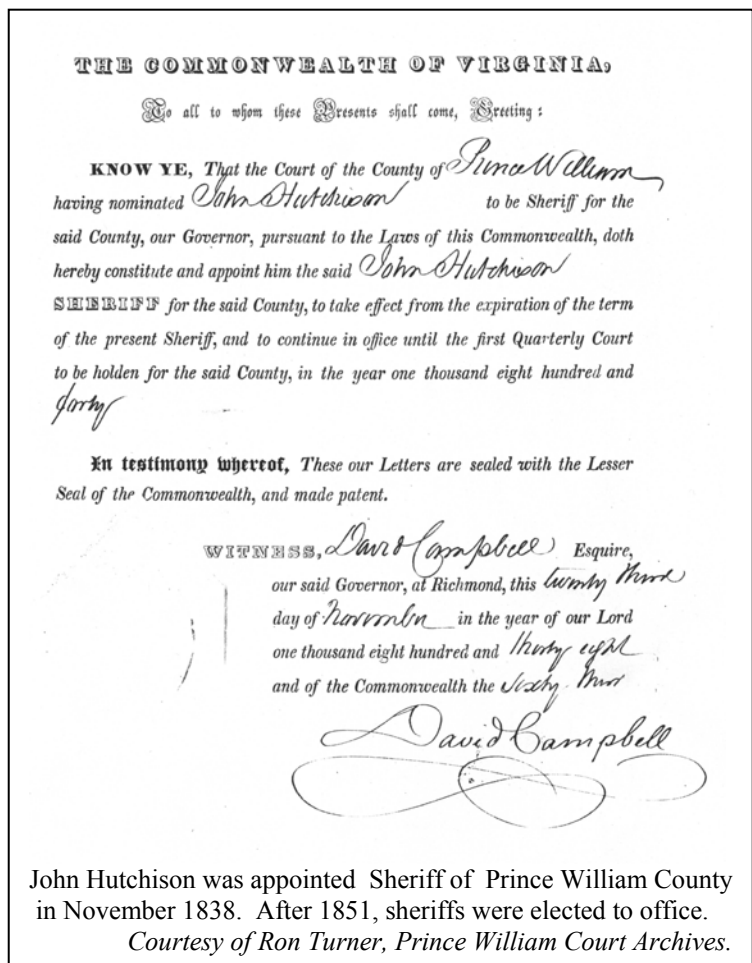 THE COMMONWEALTH OF VIRGINIA,
To all to whom these Presents shall come, Greeting:
KNOW YE, That the Court of the County of Prince William
having nominated John Hutchison to be Sheriff for the
said County, our Governor, pursuant to the Laws of this Commonwealth, doth
hereby constitute and appoint him the said John Hutchison
SHERIFF for the said County, to take effect from the expiration of the term
of the present Sheriff, and to continue in office until the first Quarterly Court
to be holden for the said County, in the year one thousand eight hundred and
forty
In testimony whereof, These our Letters are sealed with the Lesser
Seal of the Commonwealth, and made patent.
WITNESS, David Campbell Esquire,
our said Governor, at Richmond, this twenty third
day of November in the year of our Lord
one thousand eight hundred and thirty eight
and of the Commonwealth the sixty third
David Campbell
John Hutchison was appointed Sheriff of Prince William County
in November 1838. After 1851, sheriffs were elected to office.
Courtesy of Ron Turner, Prince William Court Archives.